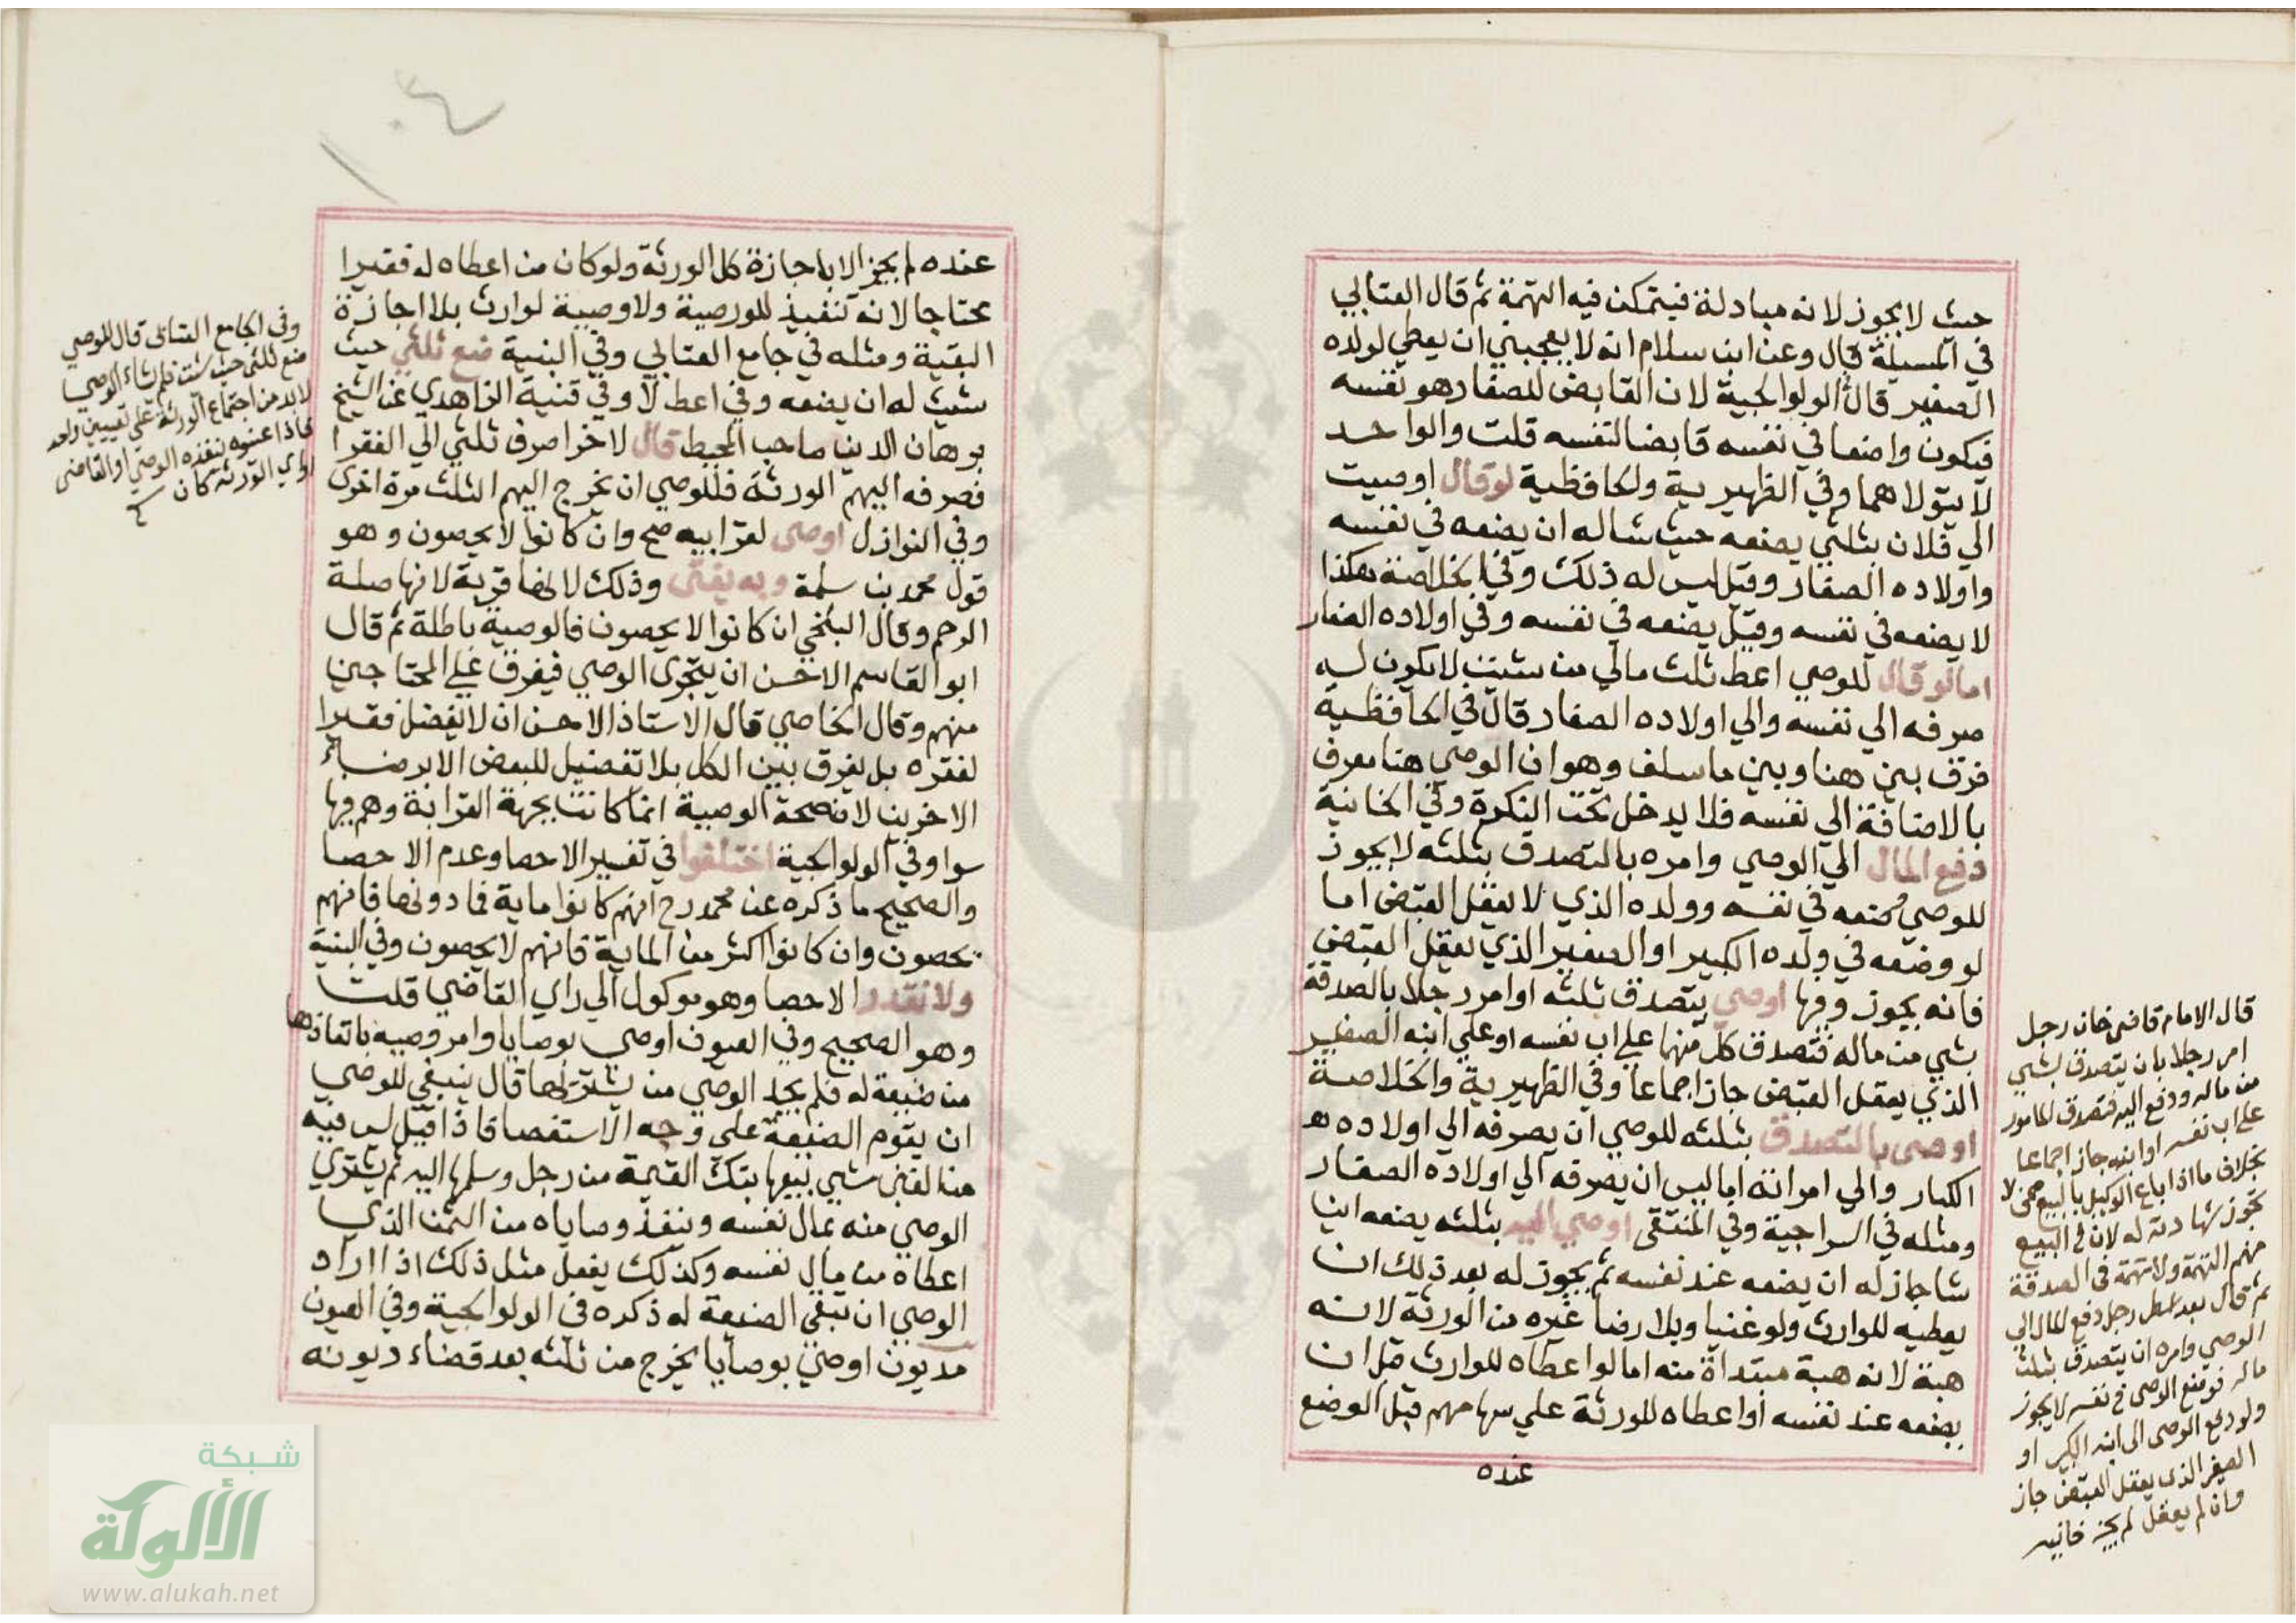 حيث لا يجوز لانه مبادلة فيتمكن فيه التهمة ثم قال العتابي
في المسيلة قال وعن ابن سلام انه لا يعجبني ان يعطي لولده
الصغير قال الولوالجية لان القابض للصغار هو نفسه
فيكون واضعا في نفسه قابضا لنفسه قلت والواحد
لا يتولاهما وفي الظهيرية والحافظية لو قال اوصيت
الي فلان بثلثي يضعه حيث شا له ان يضعه في نفسه
واولاده الصغار وقيل ليس له ذلك وفي الخلاصة هكذا
لا يضعه في نفسه وقيل يضعه في نفسه وفي اولاده الصغار
اما لو قال للوصي اعط ثلث مالي من شئت لا يكون له
صرفه الي نفسه والي اولاده الصغار قال في الحافظية
فرق بين هنا وبين ما سلف وهو ان الوصي هنا معرف
بالاضافة الي نفسه فلا يدخل تحت النكرة وفي الخانية
دفع المال الي الوصي وامره بالتصدق بثلثه لا يجوز
للوصي وضعه في نفسه وولده الذي لا يعقل القبض اما
لو وضعه في ولده الكبير او الصغير الذي يعقل القبض
فانه يجوز وفيها اوصي يتصدق بثلثه او امر رجلا بالصدقة
بشي من ماله فتصدق كل منهما علي اب نفسه او علي ابنه الصغير
الذي يعقل القبض جاز اجماعا وفي الظهيرية والخلاصة
اوصى بالتصدق بثلثه للوصي ان يصرفه الي اولاده
الكبار والي امراته اما ليس ان يصرفه الي اولاده الصغار
ومثله في السراجية وفي المنتقى اوصي اليه بثلثه يضعه اينا
شا جاز له ان يضعه عند نفسه ثم يجوز له بعد ذلك ان
يعطيه للوارث ولو غنيا وبلا رضا غيره من الورثة لانه
هبة لانه هبة مبتداة منه اما لو اعطاه للوارث قبل ان
يضعه عند نفسه او اعطاه للورثة علي سهامهم قبل الوضع
عنده
قال الامام قاضى خان رجل
امر رجلا بان يتصدق بشي
من ماله ودفع اليه فتصدق المامور
على اب نفسه او ابنه جاز اجماعا
بخلاف ما اذا باع الوكيل بالبيع ممن لا
تجوز شهادته له لان في البيع
منهم التهمة ولا تهمة في الصدقة
ثم قال بعد اسطر رجل دفع المال الى
الوصي وامره ان يتصدق بثلث
ماله فوضع الوصى في نفسه لا يجوز
ولو دفع الوصى الى ابنه الكبير او
الصغير الذى يعقل القبض جاز
وان لم يعقل لم يجز خانيه
١٠٤
عنده لم يجز الا باجازة كل الورثة ولو كان من اعطاه له فقيرا
محتاجا لانه تنفيذ للوصية ولا وصية لوارث بلا اجازة
البقية ومثله في جامع العتابي وفي البنية ضع ثلثي حيث
شيت له ان يضعه وفي اعط لا وفي قنية الزاهدي عن الشيخ
برهان الدين صاحب المحيط قال لاخر اصرف ثلثي الي الفقرا
فصرفه اليهم الورثة فللوصي ان يخرج اليهم الثلث مرة اخرى
وفي النوازل اوصى لقرابيه صح وان كانوا لا يحصون وهو
قول محمد بن سلمة وبه يفتى وذلك لانها قربة لانها صلة
الرحم وقال البلخي ان كانوا لا يحصون فالوصية باطلة ثم قال
ابو القاسم الاحسن ان يتحرى الوصي فيفرق علي المحتاجين
منهم وقال الخاصي قال الاستاذ الاحسن ان لا يفضل فقيرا
لفقره بل يفرق بين الكل بلا تفضيل للبعض الا برضاء
الاخرين لان صحة الوصية انما كانت بجهة القرابة وهم فيها
سوا وفي الولوالجية اختلفوا في تفسير الاحصا وعدم الاحصا
والصحيح ما ذكره عن محمد رح انهم كانوا ماية فما دونها فانهم
يحصون وان كانوا اكثر من الماية فانهم لا يحصون وفي البنية
ولا نقدر الاحصا وهو موكول الي راي القاضي قلت
وهو الصحيح وفي العيون اوصي بوصايا وامر وصيه بانفاذها
من ضيعة له فلم يجد الوصي من يشتريها قال ينبغي للوصي
ان يقوم الضيعة علي وجه الاستقصا فاذا قيل ليس فيه
من الغبن شي يبيعها بتلك القيمة من رجل وسلمها اليه ثم يشتري
الوصي منه بمال نفسه وينفذ وصاياه من الثمن الذي
اعطاه من مال نفسه وكذلك يفعل مثل ذلك اذا اراد
الوصي ان تبقي الضيعة له ذكره في الولوالجية وفي العيون
مديون اوصي بوصايا يخرج من ثلثه بعد قضاء ديونه
وفى الجامع العتابى قال للوصي
ضع ثلثى حيث شئت فلم يشاء الوصي
لا بد من اجتماع الورثة على تعيين واحد
فاذا عينوه ينفذه الوصي او القاضى
او اي الورثه كان
شبكة
الألوكة
www.alukah.net